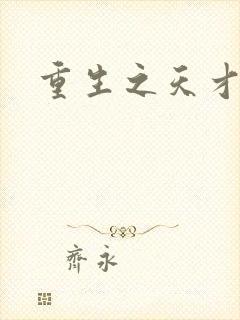 重生之天才
齊永